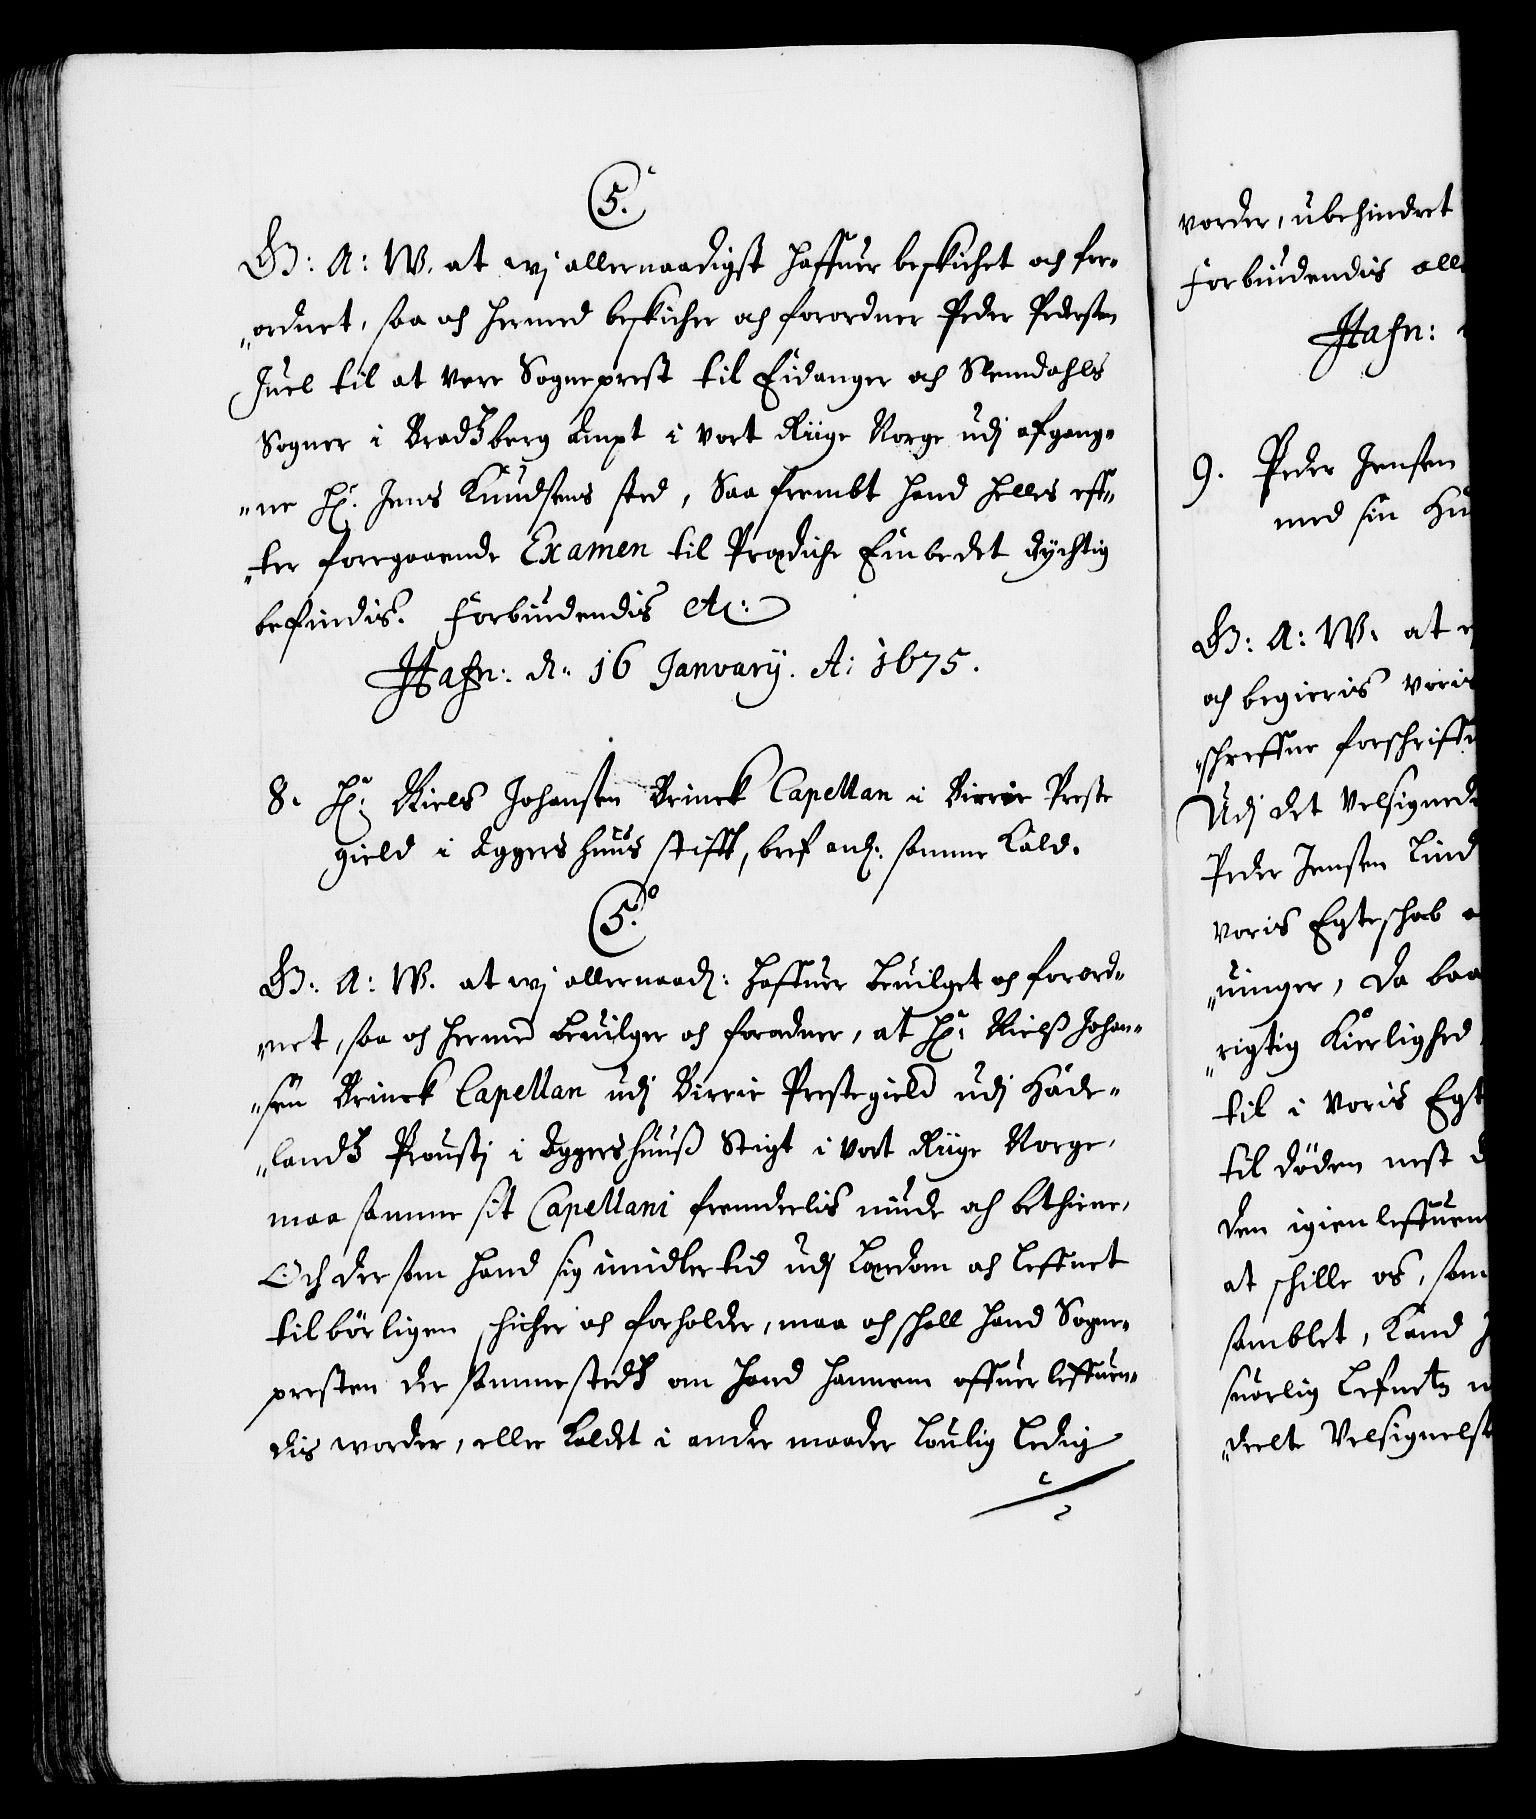 5.
G: A: W. at wj allernaadigst haffuer beskichet och for-
"ordnet, saa och hermed beskicher och forordner Peder Pedersten
Juel til at vere Sogneprest til Eidanger och Slemdahls
Sogner i Bradtzberg Ampt i vort Riige Norge udj afgang-
"ne Hr: Jens Knudtsens sted, Saa frembt hand helles eff-
"ter foregaaende Examen til Prædiche Embedet dychtig
befindis. Forbiudendis etc:
Hafn: d: 16 January. A: 1675.
8. Hr: Niels Johansten Brinck Capellan i Birrie Preste
gield i Aggershuus stifft, bref anl: samme Kald.
5.
G: A: W. at wj allernaad: haffuer beuilget och forord-
"net, saa och hermed beuilger och forordner, at Hr: Nielss Johan-
"sen Brinck Capellan udj Birrie Prestegield udj Hade-
"landtz Prousti i Aggershuuss Stigt i vort Riige Norge,
maa samme sit Capellani fremderlis niude och bethiene,
Och der som hand sig imidlertid udj Lærdom och Leffnet
tilbörligen schicher och forholder, maa och schall hand Sogne-
presten der sammestedtz om hand hannem offuer leffuen-
dis worder, eller Kaldet i ander maader Loulig Ledig
vorder, ubehindret
Forbiudendis alle
Hafn:
9. Peder Jensen
med sin Hu
G: A: W. at
och begieris voris
"schreffne forschriffu
Udj det Velsignede
Peder Jensten Lind
voris Egteschab
"uinger, da baa
"rigtig Kierlighed
til i voris Egt
til döden nest
den igien leffuen
at schille os, som
samblet, Kand
suorlig Lefnetz
"deelte Velsignelse